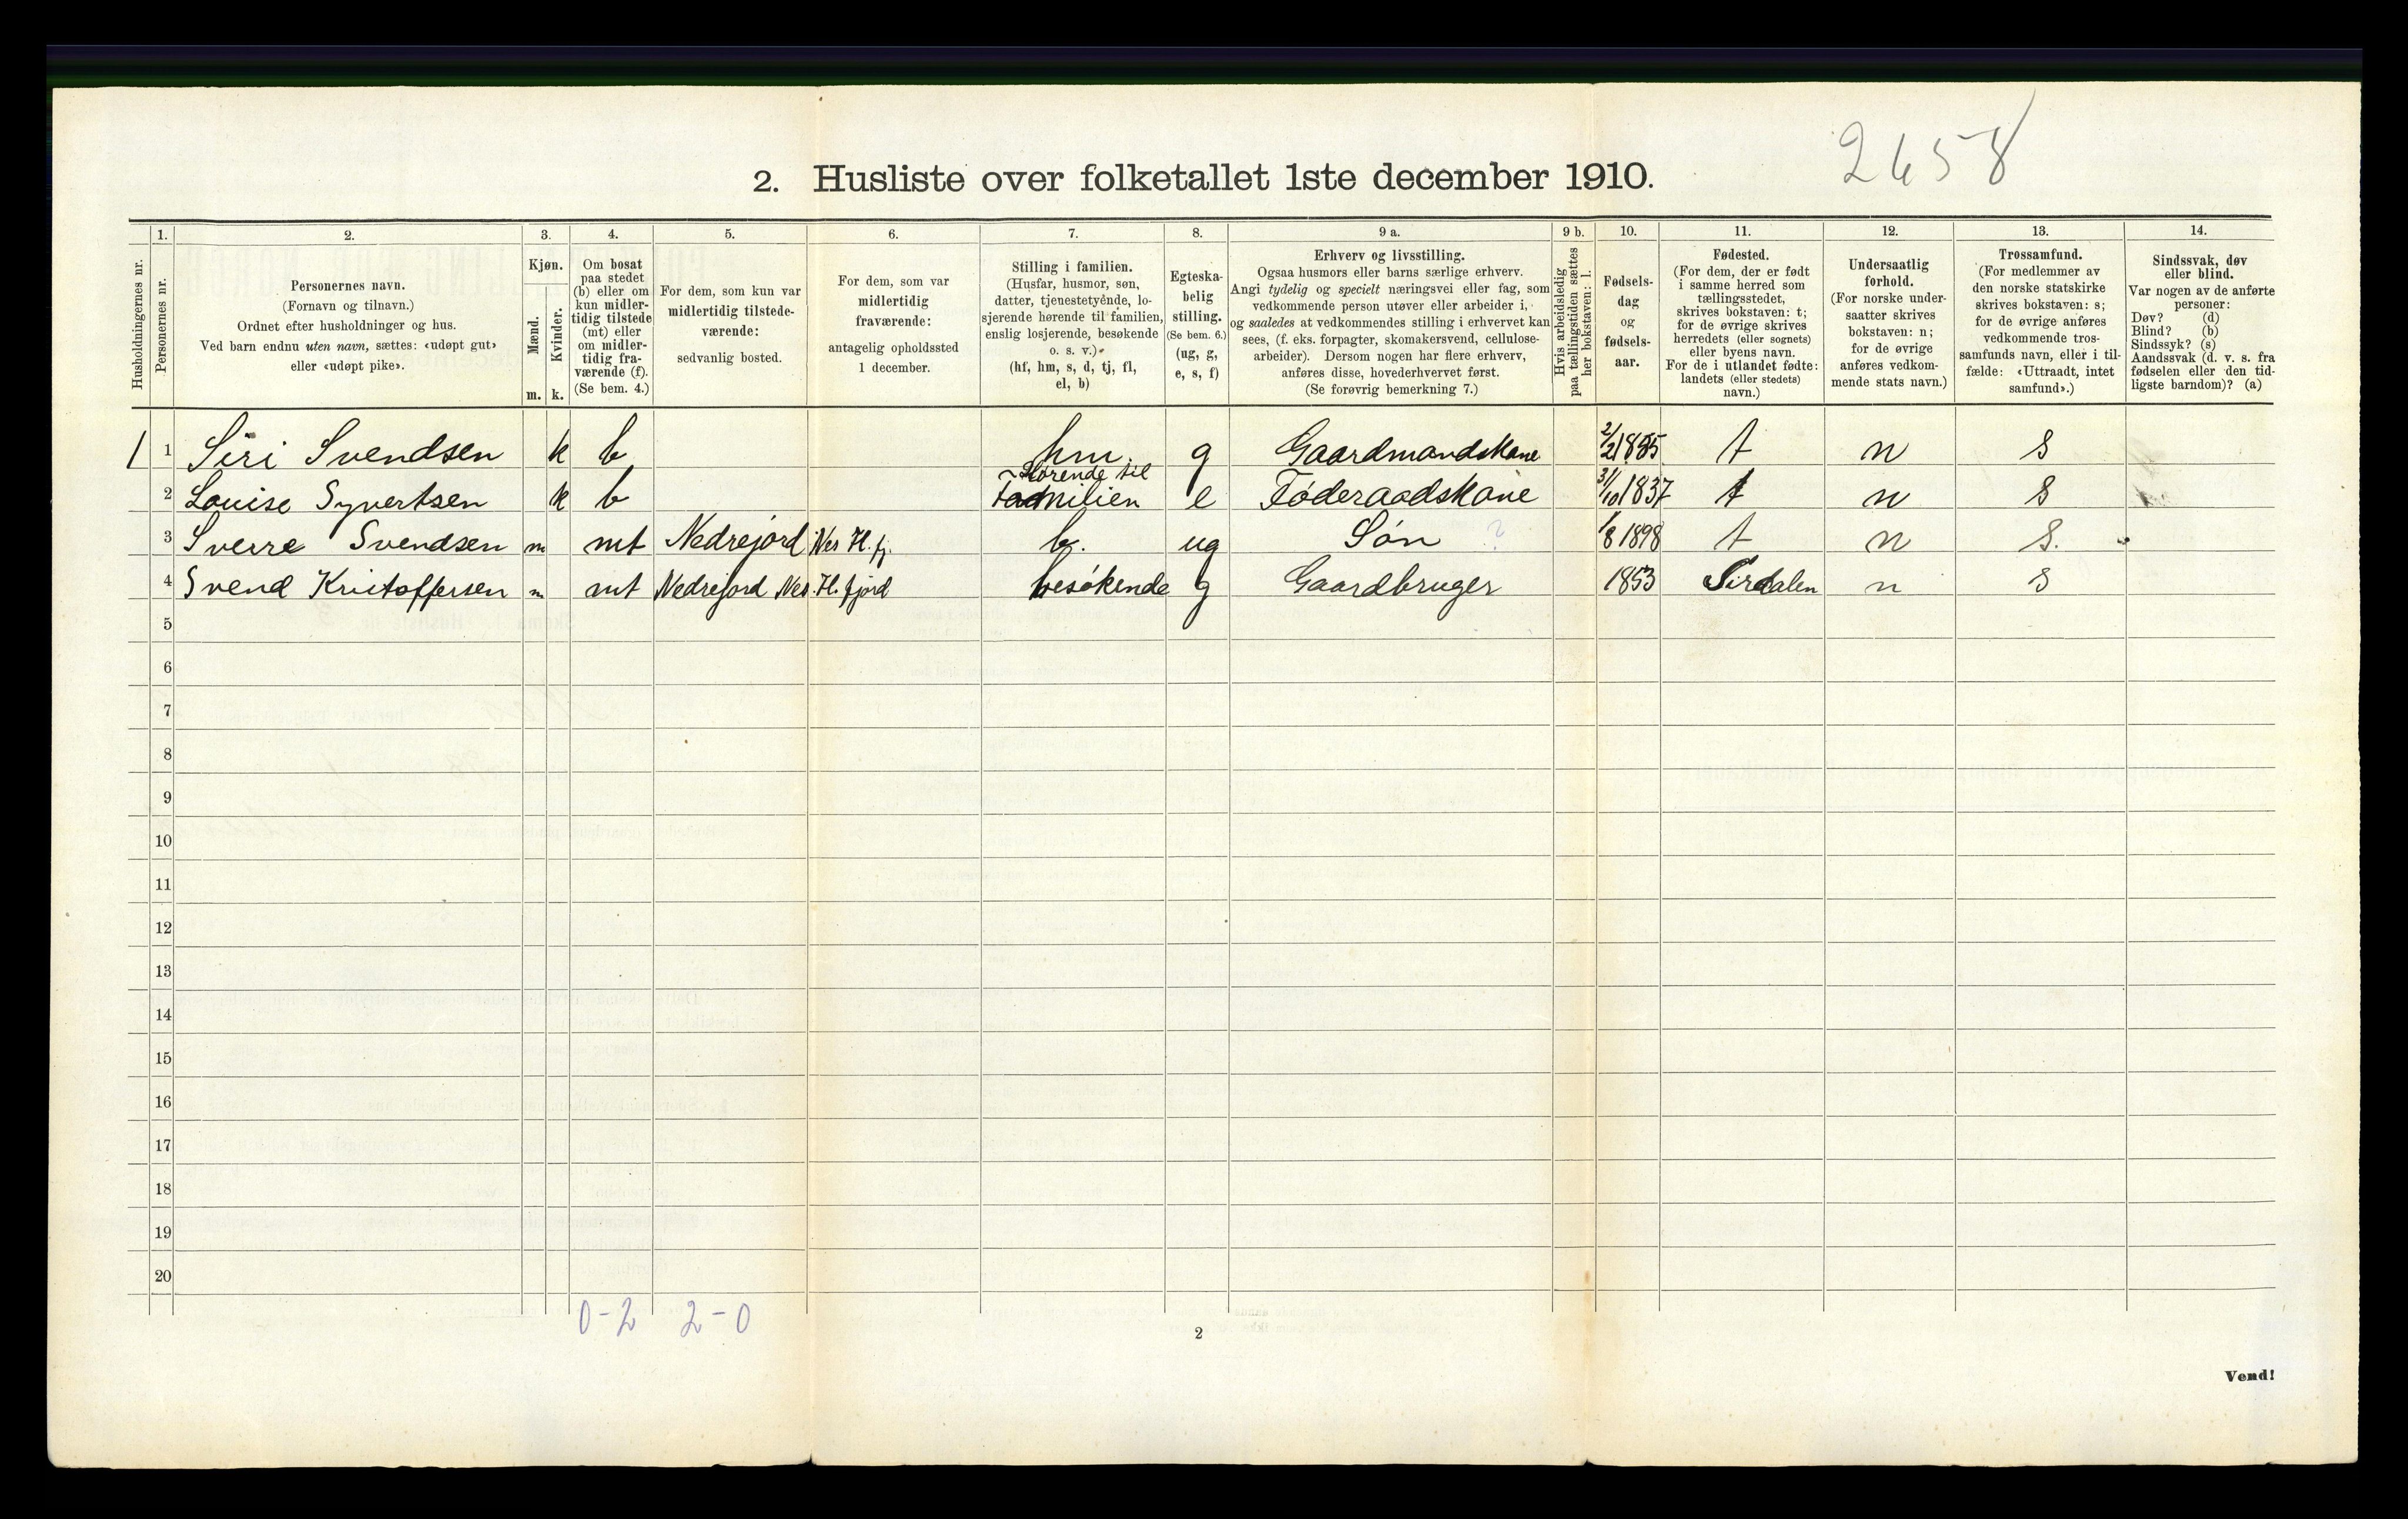 2658
2. Husliste over folketallet 1ste december 1910.
1. 2. 3. 4. 5. 6. 7. 8. 9 a. 9 b. 10. 11. 12. 13. 14.
Husholdningernes nr.
Personernes nr.
Personernes navn.
(Fornavn og tilnavn.)
Ordnet efter husholdninger og hus.
Ved barn endnu uten navn, sættes: «udøpt gut»
eller «udøpt pike».
Kjøn.
Mænd.
Kvinder.
m. k.
Om bosat
paa stedet
(b) eller om
kun midler-
tidig tilstede
(mt) eller
om midler-
tidig fra-
værende (f).
(Se bem. 4.)
For dem, som kun var
midlertidig tilstede-
værende:
sedvanlig bosted.
For dem, som var
midlertidig
fraværende:
antagelig opholdssted
1 december.
Stilling i familien.
(Husfar, husmor, søn,
datter, tjenestetyende, lo-
sjerende hørende til familien,
enslig losjerende, besøkende
o. s. v.)
(hf, hm, s, d, tj, fl,
el, b)
Egteska-
belig
stilling.
(Se bem. 6.)
(ug, g,
e, s, f)
Erhverv og livsstilling.
Ogsaa husmors eller barns særlige erhverv.
Angi tydelig og specielt næringsvei eller fag, som
vedkommende person utøver eller arbeider i,
og saaledes at vedkommendes stilling i erhvervet kan
sees, (f. eks. forpagter, skomakersvend, cellulose-
arbeider). Dersom nogen har flere erhverv,
anføres disse, hovederhvervet først.
(Se forøvrig bemerkning 7.)
Hvis arbeidsledig
paa tællingstiden sættes
her bokstaven: l.
Fødsels-
dag
og
fødsels-
aar.
Fødested.
(For dem, der er født
i samme herred som
tællingsstedet,
skrives bokstaven: t;
for de øvrige skrives
herredets (eller sognets)
eller byens navn.
For de i utlandet fødte:
landets (eller stedets)
navn.)
Undersaatlig
forhold.
(For norske under-
saatter skrives
bokstaven: n;
for de øvrige
anføres vedkom-
mende stats navn.)
Trossamfund.
(For medlemmer av
den norske statskirke
skrives bokstaven: s;
for de øvrige anføres
vedkommende tros-
samfunds navn, eller i til-
fælde: «Uttraadt, intet
samfund».)
Sindssvak, døv
eller blind.
Var nogen av de anførte
personer:
Døv? (d)
Blind? (b)
Sindssyk? (s)
Aandssvak (d. v. s. fra
fødselen eller den tid-
ligste barndom)? (a)
1 1 Siri Svendsen k b hm. g Gaardmandskone 2/2 1885 t n s
2 Louise Syvertsen k b Hørende til familien e Føderaadskone 31/10 1837 t n s
3 Sverre Svendsen m mt Nedrejord Nes H. fj. b. ug Søn ? 1/8 1898 t n s.
4 Svend Kristoffersen m mt Nedrejord Nes. H. fjord besøkende g Gaardbruger 1853 Sirdalen n s
5
6
7
8
9
10
11
12
13
14
15
16
17
18
19
20
0-2 2-0
2
Vend!